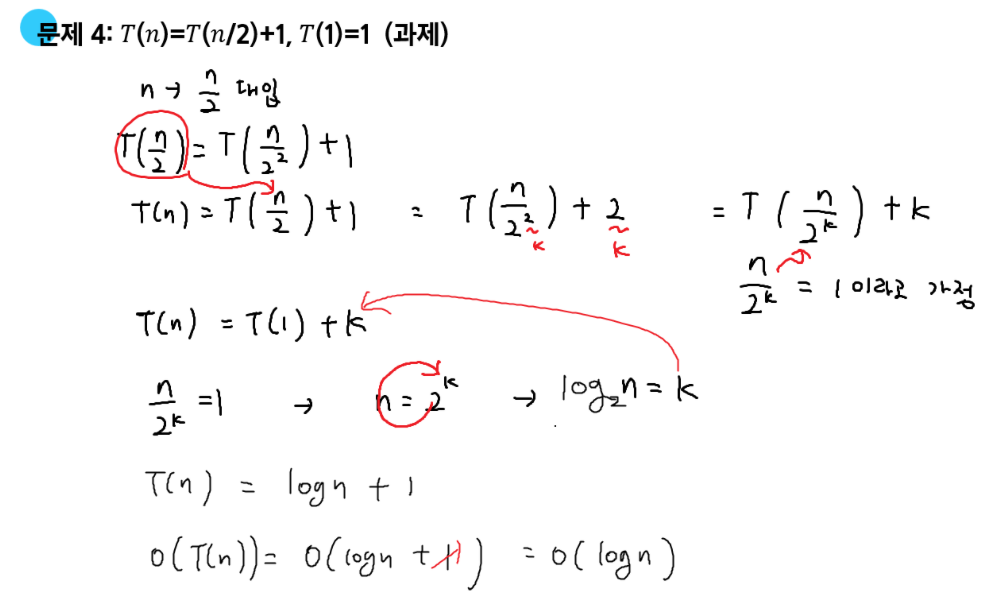 문제 4: T(n)=T(n/2)+1, T(1)=1 (과제)
n → n/2 대입
T(n/2) = T(n/2²) + 1
T(n) = T(n/2) + 1 = T(n/2²) + 2 = T(n/2ᵏ) + k
k k
n/2ᵏ = 1 이라고 가정
T(n) = T(1) + k
n/2ᵏ = 1 → n = 2ᵏ → log₂n = k
T(n) = logn + 1
O(T(n)) = O(logn + 1) = O(logn)